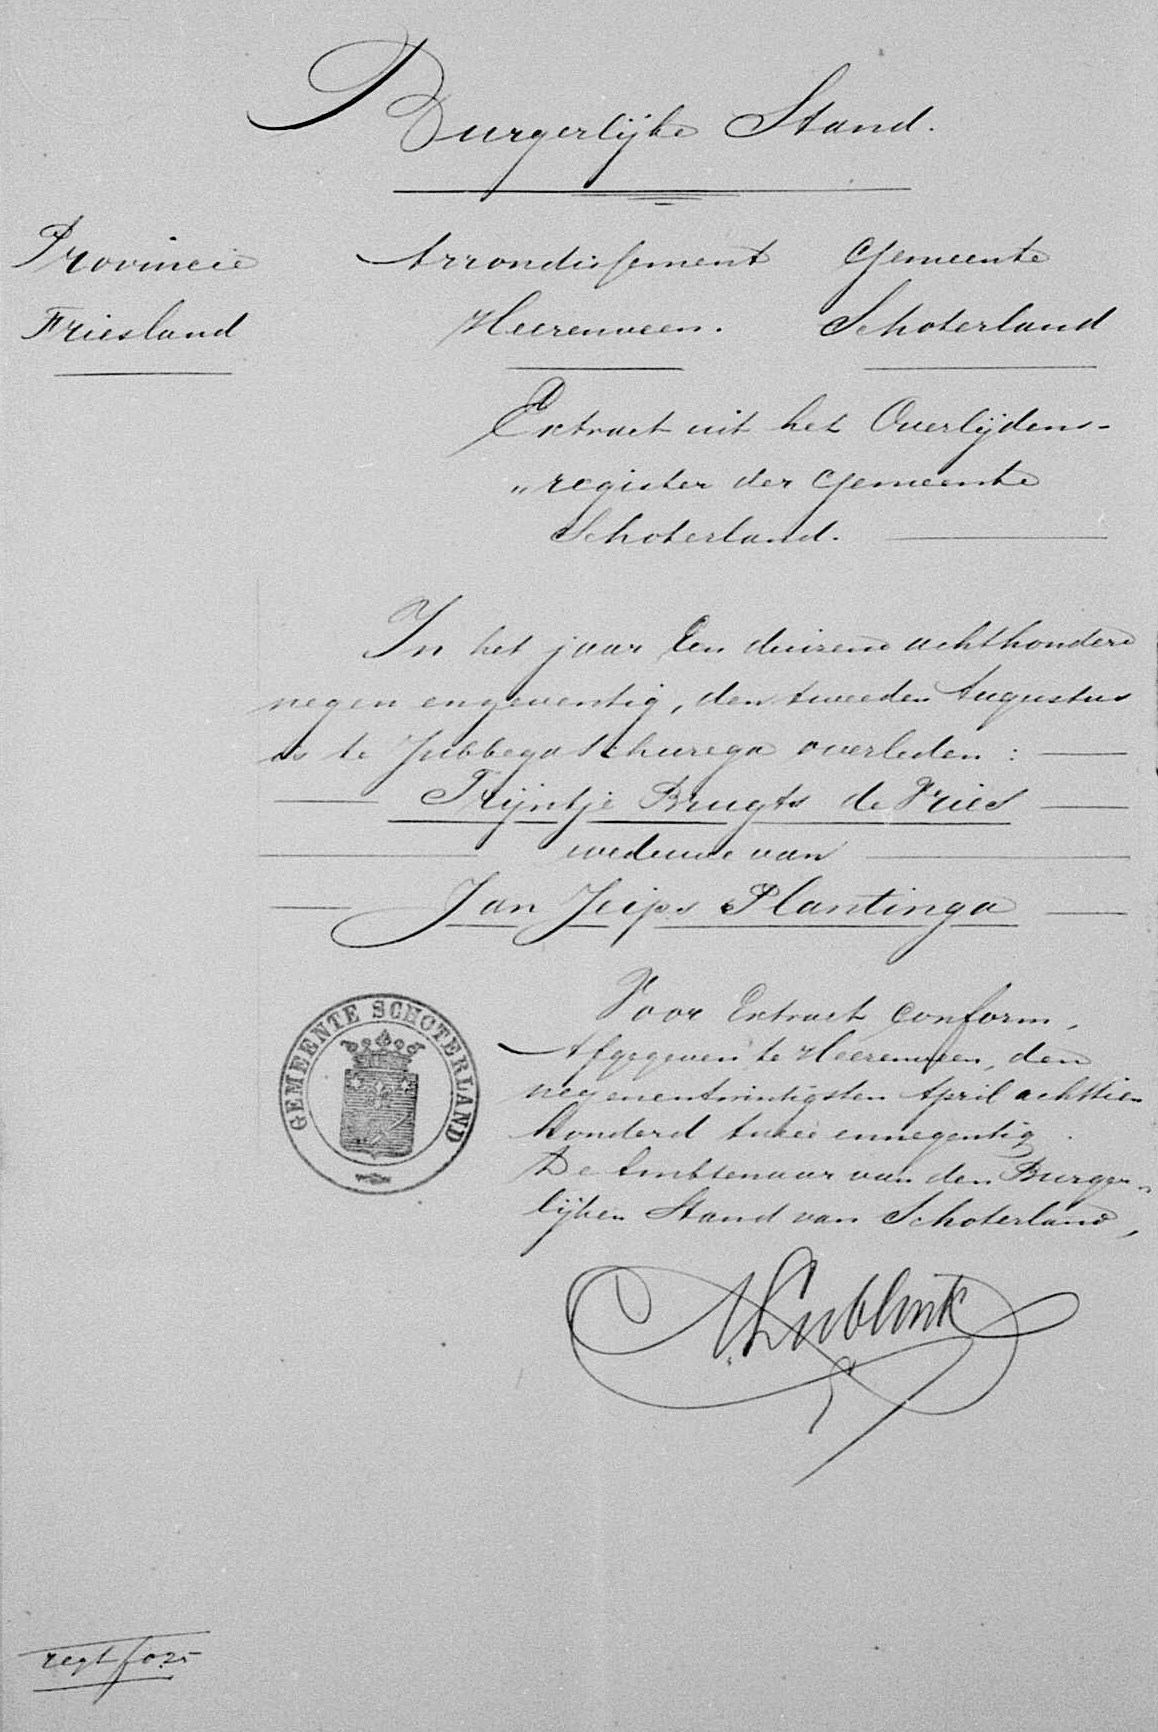 Burgerlijke Stand.
Provincie Arrondissement Gemeente
Friesland Heerenveen. Schoterland
Extract uit het Overlijdens-
„register der Gemeente
Schoterland.
In het jaar Een duizend achthonderd
negen en zeventig, den tweeden Augustus
is te Jubbega Schurega overleden:
Trijntje Brugts de Vries
weduwe van
Jan Jeips Plantinga
GEMEENTE SCHOTERLAND
Voor Extract conform,
Afgegeven te Heerenveen, den
negenentwintigsten April achttien
honderd twee ennegentig.
De Ambtenaar van den Burger-
lijken Stand van Schoterland,
Lublink
regt f 0.25